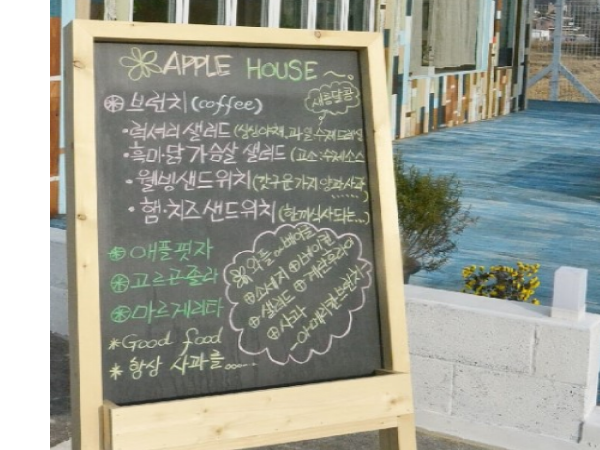 APPLE HOUSE
브런치(coffee)
새콤달콤
·럭셔리 샐러드(싱싱야채, 과일, 수제드레싱)
·흑마늘 닭가슴살 샐러드(고소:수제소스
·웰빙샌드위치(갓구운가지,양파,사과,......)
·햄·치즈샌드위치(한끼식사되는...)
애플핏자
고르곤졸라
마르게리타
*Good food
*항상 사과를.....
와플 or 베이글
⊕소세지 ⊕베이컨
⊕샐러드 ⊕계란후라이
⊕사과
...아메리칸브런치